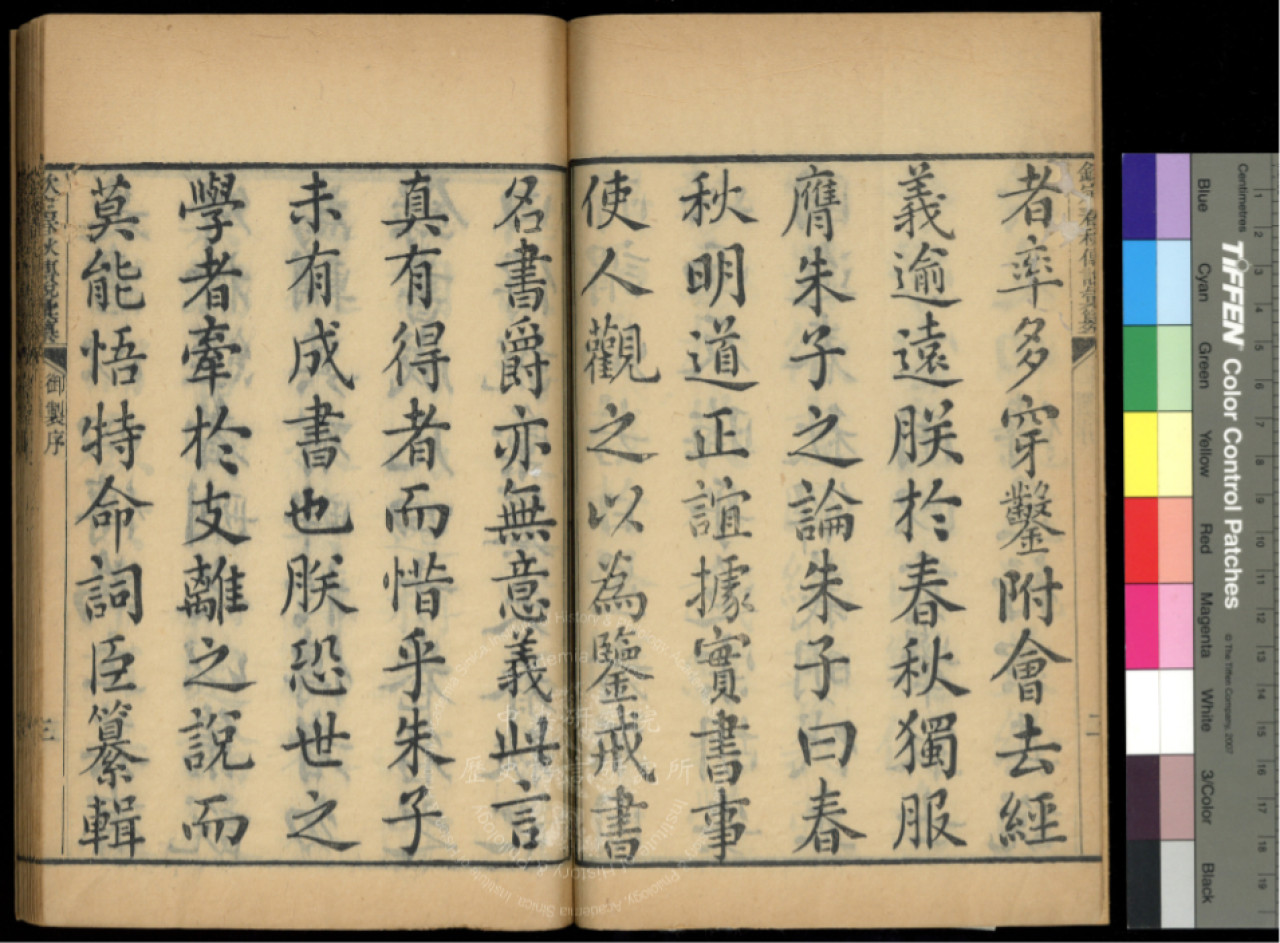 者率多穿鑿附會去經
義逾遠朕於春秋獨服
膺朱子之論朱子曰春
秋明道正誼據實書事
使人觀之以為鑒戒書
名書爵亦無意義此言
真有得者而惜乎朱子
未有成書也朕恐世之
學者牽於支離之說而
莫能悟特命詞臣纂輯
御製序
三
二
歷史語言研究所
Centimetres
TIFFEN Color Control Patches
© The Tiffen Company, 2007
Blue
Cyan
Green
Yellow
Red
Magenta
White
3/Color
Black
1
2
3
4
5
6
7
8
9
10
11
12
13
14
15
16
17
18
19